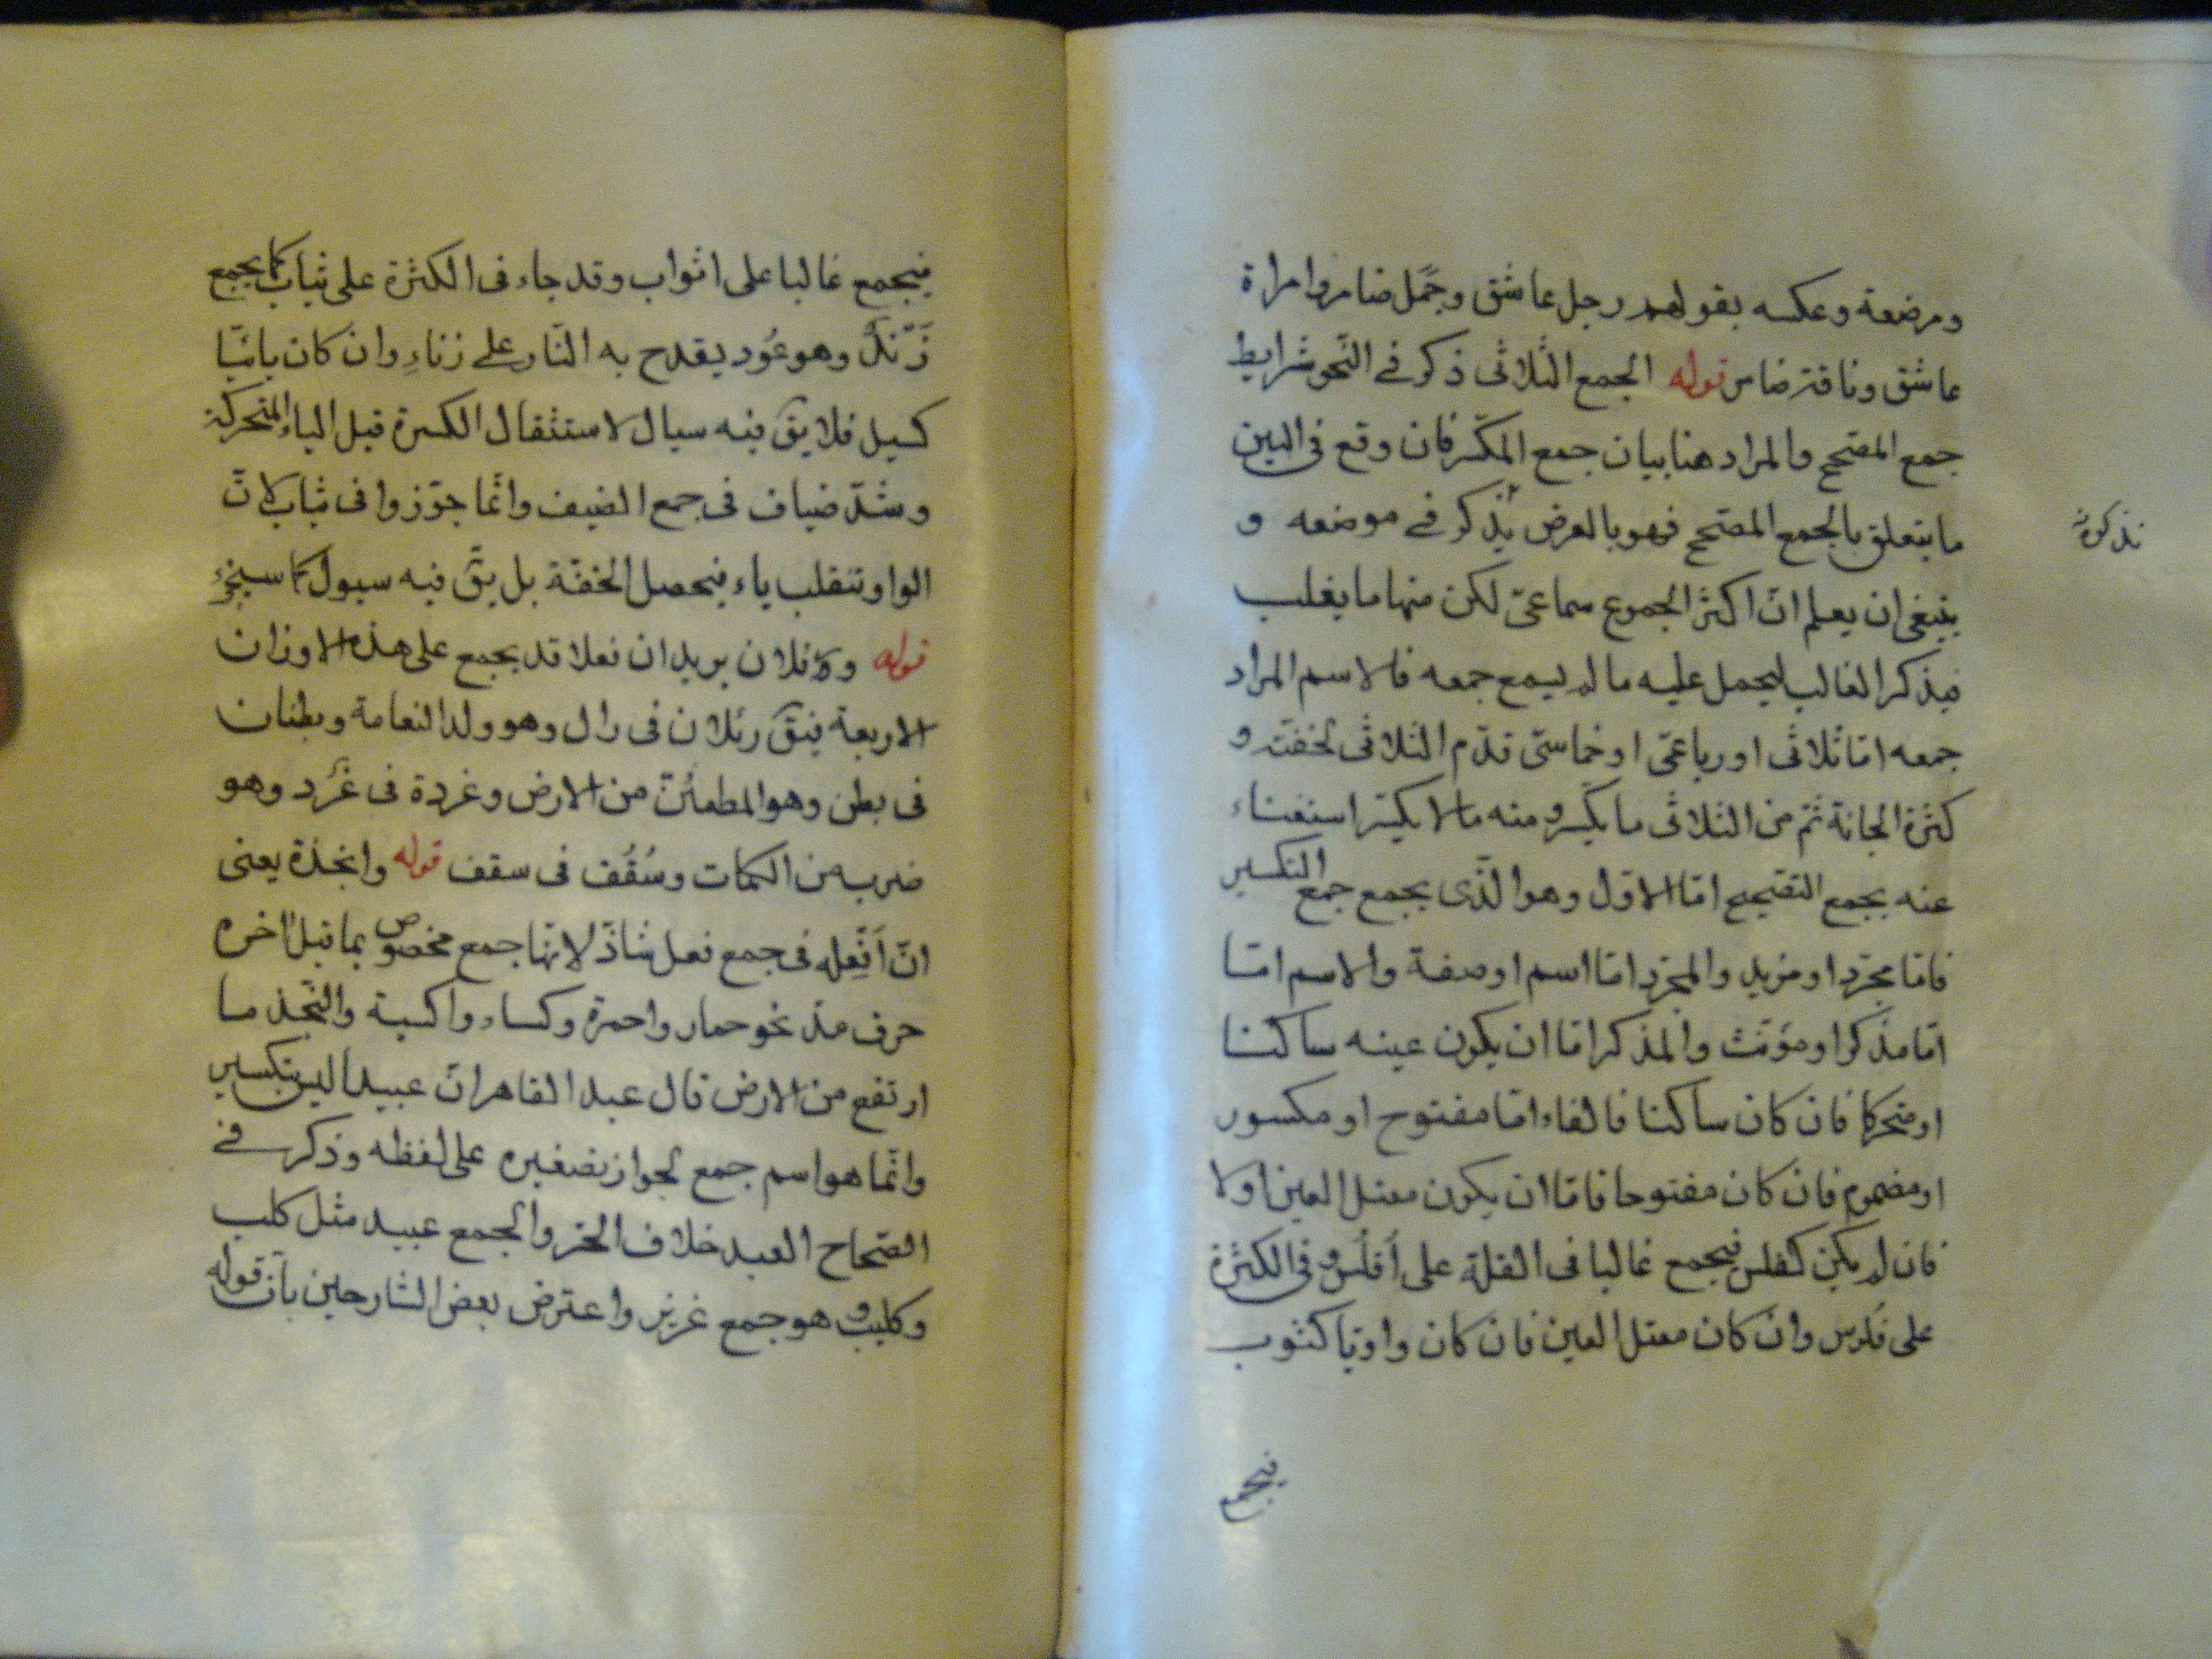 ومرضعة وعكسه بقولهم رجل عاشق وجمل ضامر وامراة
عاشق وناقة ضامر قوله الجمع الثلاثى ذكر فى النحو شرايط
جمع المصحح والمراد هنا بيان جمع المكسّر فان وقع فى البين
ما يتعلق بالجمع المصحح فهو بالعرض يذكر فى موضعه و
ينبغى ان يعلم انّ اكثر الجموع سماعىّ لكن منها ما يغلب
فيذكر الغالب ليحمل عليه ما لم يسمع جمعه فالاسم المراد
جمعه امّا ثلاثى او رباعىّ او خماسىّ قدّم الثلاثى لخفته و
كثرة ثم من الثلاثى ما يكسّر ومنه ما لا يكسّر استغناء
عنه بجمع التصحيح امّا الاوّل وهو الّذى يجمع جمع التكسير
فامّا مجرّد او مزيد والمجرّد امّا اسم او صفة والاسم امّا
امّا مذكر او مؤنّث والمذكر امّا ان يكون عينه ساكنا
او متحركا فان كان ساكنا فالفاء امّا مفتوح او مكسور
او مضموم فان كان مفتوحا فامّا ان يكون معتل العين او لا
فان لم يكن كفلس فيجمع غالبا فى القلة على أفلُس وفى الكثرة
على فلوس وان كان معتل العين فان كان واويّا كثوب
فيجمع
فيجمع غالبا على اثواب وقد جاء فى الكثرة على ثياب كما يجمع
زَنْدٌ وهو عُود يقدح به النّار على زناد وان كان يائيّا
كسيل فلا يقَ فيه سيال لاستثقال الكسرة قبل الياء المتحركة
وشذّ ضياف فى جمع الضيف وانّما جوّزوا فى ثياب لانّ
الواو تنقلب ياء فيحصل الخفّة بل يقَ فيه سيول كما سيجئ
قوله ورئلان يريد ان فعلا قد يجمع على هذه الاوزان
الاربعة فيقَ رئلان فى رال وهو ولد النعامة وبطنان
فى بطن وهو المطمئنّ من الارض وغردة فى غَرْد وهو
ضرب من الكمات وسُقُف فى سقف قوله وانجدة يعنى
انّ أفعِله فى جمع فعل شاذّ لانّها جمع مخصوص بما قبل اخره
حرف مدّ نحو حمار واحمرة وكساء واكسية والنّجد ما
ارتفع من الارض قال عبد القاهر انّ عبيدا ليس بتكسير
وانّما هو اسم جمع لجواز تصغيره على لفظه وذكر فى
الصّحاح العبد خلاف الحر والجمع عبيد مثل كلب
وكليب وهو جمع عزيز واعترض بعض الشارحين بانّ قوله